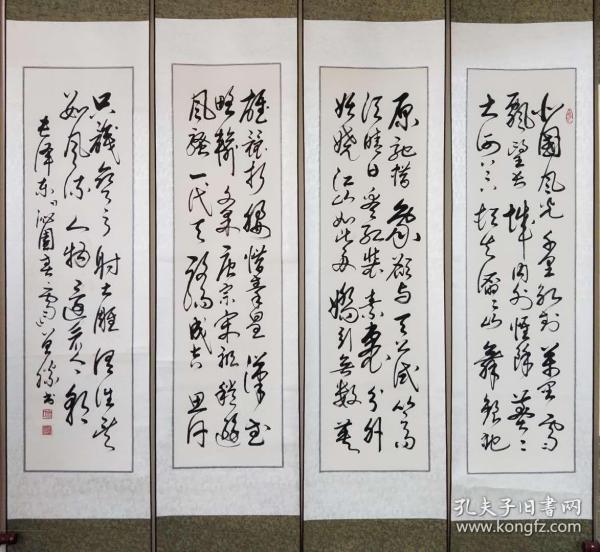 北國风光千里冰封萬里雪
飘望长城内外惟餘莽〻
大河上下顿失滔〻山舞銀蛇
原馳蜡象欲与天公試比高
须晴日看红装素裹分外
妖娆江山如此多娇引無數英
雄競折腰惜秦皇漢武
略輸文采唐宗宋祖稍遜
风骚一代天骄成吉思汗
只識弯弓射大雕俱往矣
数风流人物还看今朝
毛泽东词沁園春雪 书
孔夫子旧书网
www.kongfz.com